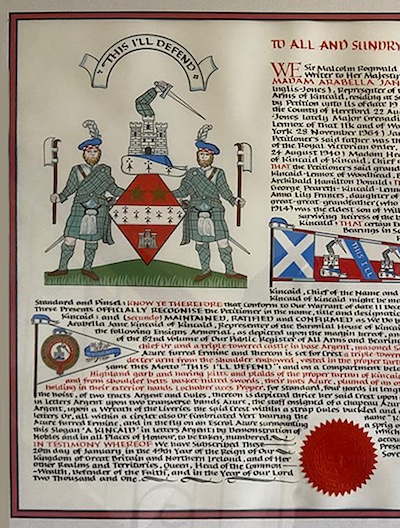 "THIS I'LL DEFEND"
TO ALL AND SUNDRY
WE Sir Malcolm Rognvald
Writer to Her Majesty
MADAM ARABELLA JAN
Inglis-Jones), Representer of
Arms of Kincaid, residing at
by Petition unto Us of date
the County of Hereford 22 Au
-Jones lately Major Grenadi
Lennox of That Ilk and of Wo
York 28 November 1964) Ja
Petitioner's said father was th
of the Royal Victorian Order
24 August 1940) Madam He
of Kincaid of Kincaid, Chief
THAT the Petitioner's said grand
Kincaid-Lennox of Woodhead,
Archibald Hamilton Donald
George Peareth-Kincaid-Lenn
Anna Lily Frances, daughter of
great-great-grandfather (who
1914) was the eldest son of Wil
surviving heiress of the
Kincaid; THAT certain
Bearings in
THIS I'LL
Kincaid, Chief of the Name and
of Kincaid might be
Standard and Pinsel; KNOW YE THEREFORE that conform to Our Warrant of date 11 Dece
These Presents OFFICIALLY RECOGNISE the Petitioner in the name, title and designatio
Kincaid; and (secondo) MAINTAINED, RATIFIED and CONFIRMED as We do
Arabella Jane Kincaid of Kincaid, Representer of the Baronial House of Kincaid
the following Ensigns Armorial, as depicted upon the margin hereof, an
of the 82nd Volume of Our Public Register of All Arms and Bearin
or a triple towered castle in base Argent, masoned
Azure furred Ermine and thereon is set for Crest a triple-tower
dexter arm from the shoulder embowed, vested in the proper tart
same this Motto "THIS I'LL DEFEND" and on a Compartment belo
Highland garb and having kilts and plaids of the proper tartan of Kincai
and from shoulder belts basket hilted swords, their hose Azure,
holding in their exterior hands Lochaber axes Proper, for Standard, four yards in leng
the hoist, of two tracts Argent and Gules, thereon is depicted thrice her said Crest upon
in letters Argent upon two transverse bands Azure, the staff ensigned of a chapeau Azur
Argent, upon a Wreath of the Liveries the said Crest within a strap Gules buckled and
letters Or, all within a circlet also Or fimbriated Vert bearing the name
Azure furred Ermine, and in the fly on an Escrol Azure surmounting a sprig
this slogan 'A KINCAID' in letters Argent; by Demonstration of which
Nobles and in all Places of Honour, to be taken, numbered,
IN TESTIMONY WHEREOF We have Subscribed These
20th day of January in the 49th Year of the Reign of Our
Kingdom of Great Britain and Northern Ireland, and of Her
other Realms and Territories, Queen, Head of the Common-
-Wealth, Defender of the Faith, and in the Year of Our Lord
Two Thousand and One.